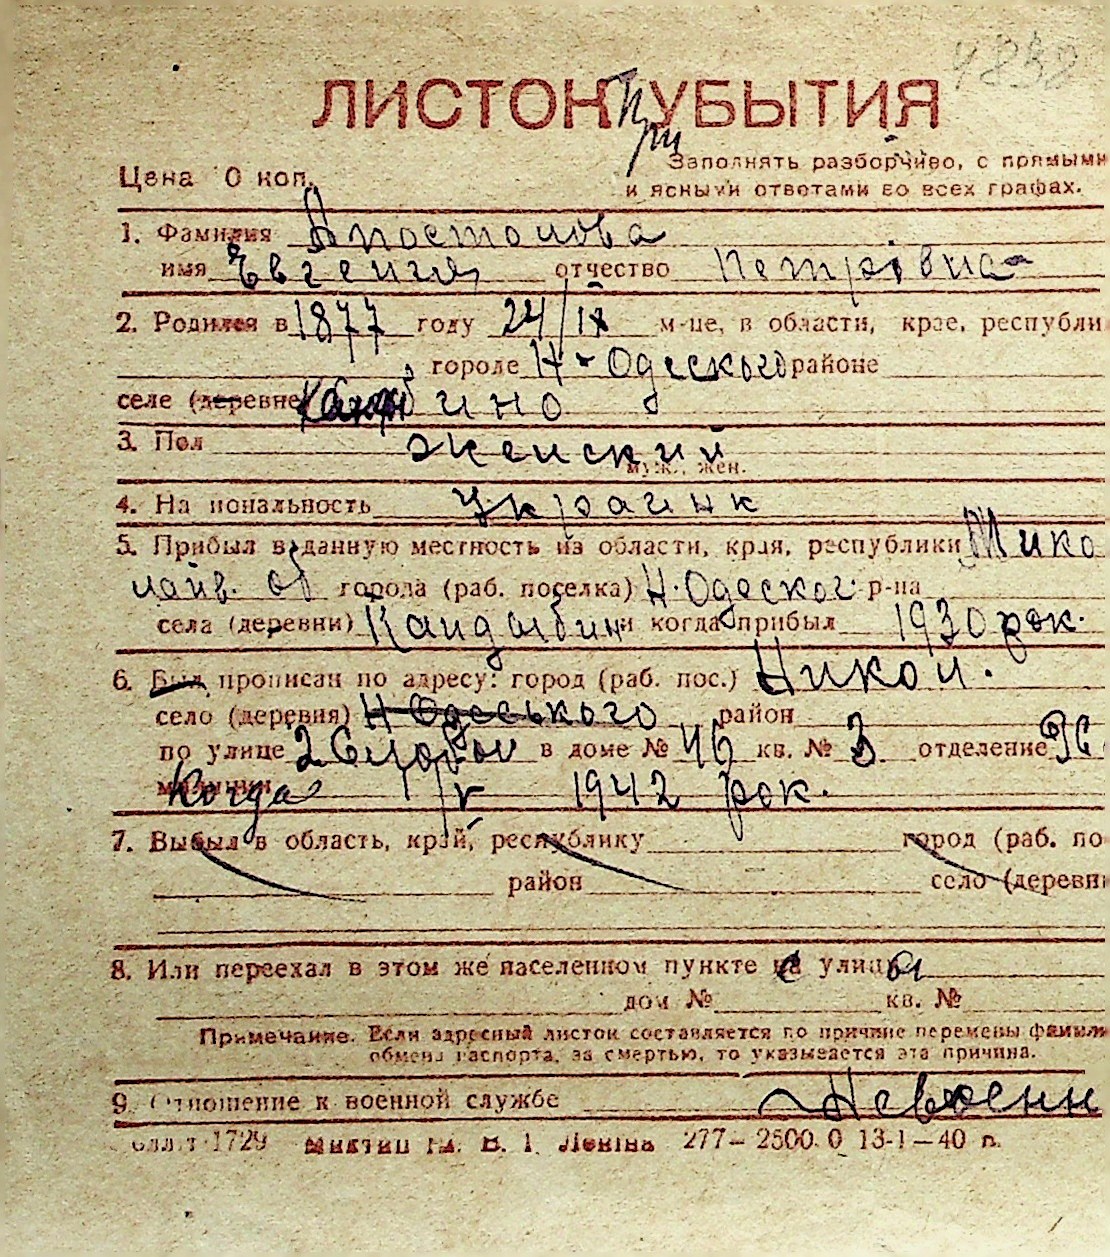 4838
ЛИСТОК УБЫТИЯ
При
Цена 0 коп.
Заполнять разборчиво, с прямыми
и ясными ответами во всех графах.
1. Фамилия Апостолова
имя Євгения отчество Петрівна
2. Родился в 1877 году 24/IX м-це, в области, крае, республи
городе Н-Одеського районе
селе (деревне
3. Пол женский
муж., жен.
4. Национальность українк
5. Прибыл в данную местность из области, края, республики Мико
лаїв. об города (раб. поселка) Н. Одеског р-на
села (деревни) Кандыбин и когда прибыл 1930 рок.
6. Был прописан по адресу: город (раб. пос.) Никол.
село (деревня) Н Одеського район
по улице 2 Слобод в доме № 46 кв. № 3 отделение
милиции Когда 1/V 1942 рок.
7. Выбыл в область, край, республику город (раб. по
район село (деревн
8. Или переехал в этом же населенном пункте с улицы
дом № кв. №
Примечание. Если адресный листок составляется по причине перемены фамили
обмена паспорта, за смертью, то указывается эта причина.
9. Отношение к военной службе Невоенн
1729 В. І. Леніна 277–2500.0 13-1–40 п.